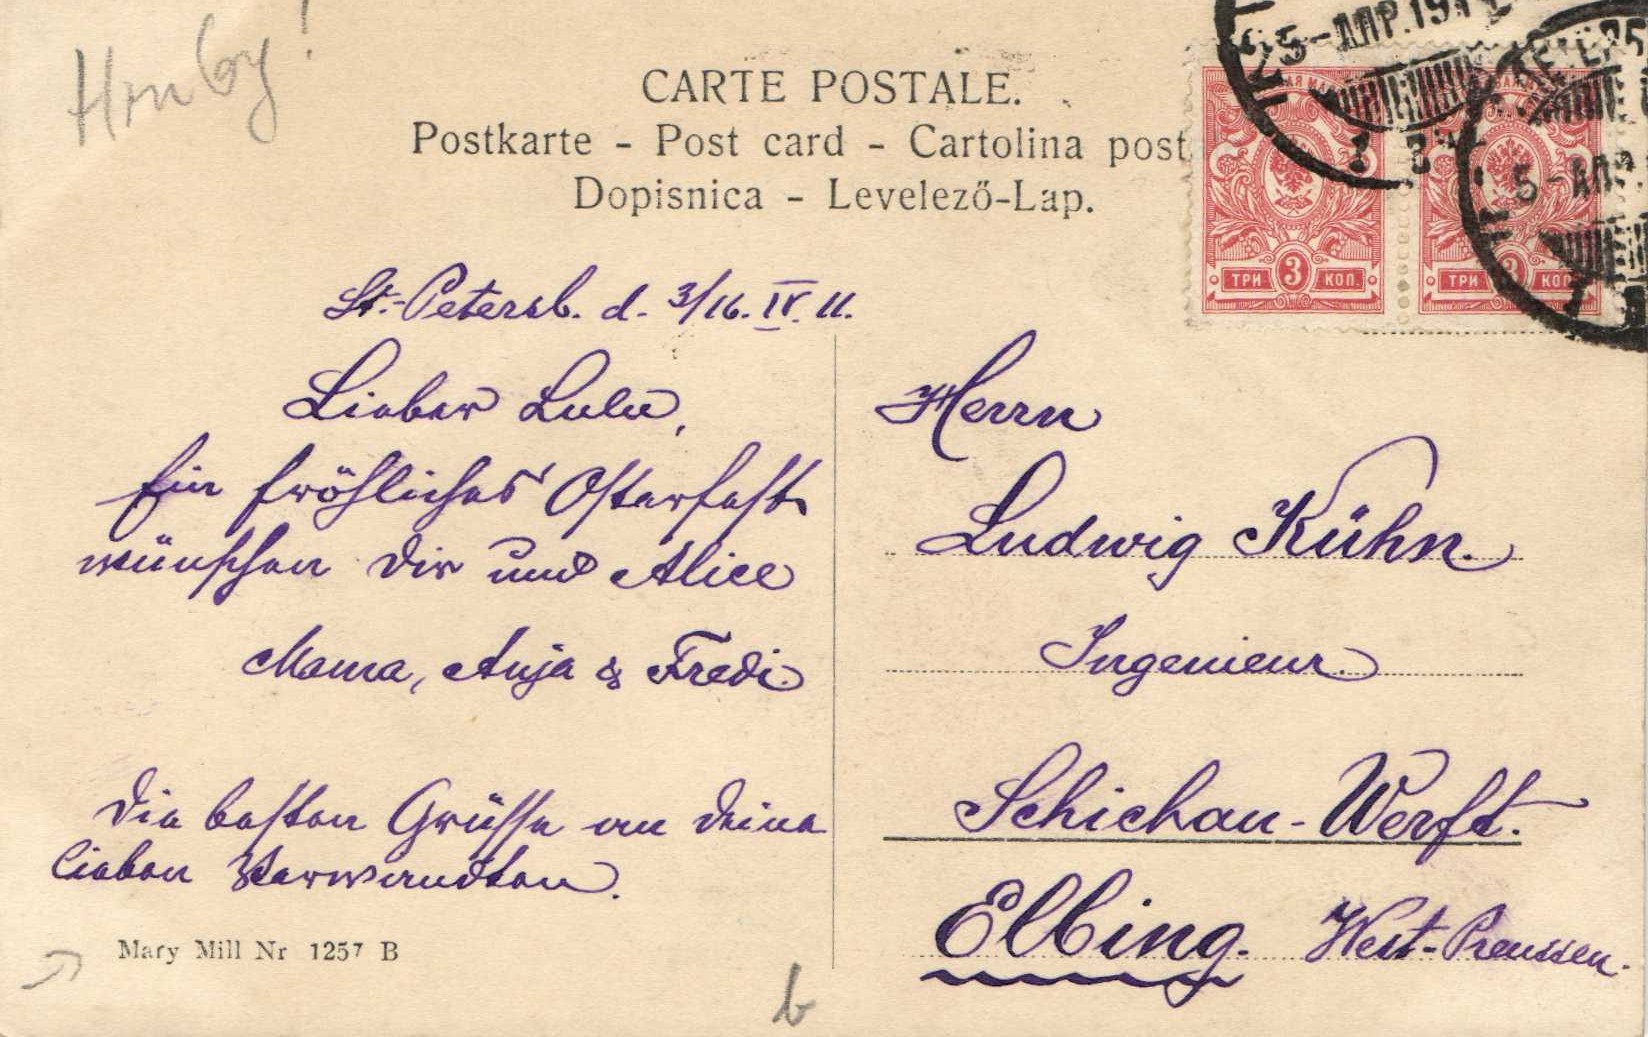 CARTE POSTALE.
Postkarte - Post card - Cartolina post
Dopisnica - Levelező-Lap.
5-АПР.191
5-АПР.
ТРИ 3 КОП.
ТРИ 3 КОП.
St.-Petersb. d. 3/16. IV. 11.
Lieber Lulu,
Ein fröhliches Osterfest
wünschen Dir und Alice
Mama, Anja & Fredi.
Die besten Grüsse an Deine
lieben Verwandten.
Herrn
Ludwig Kühn.
Ingenieur.
Schichau-Werft.
Elbing. West-Preussen.
Mary Mill Nr 1257 B
b